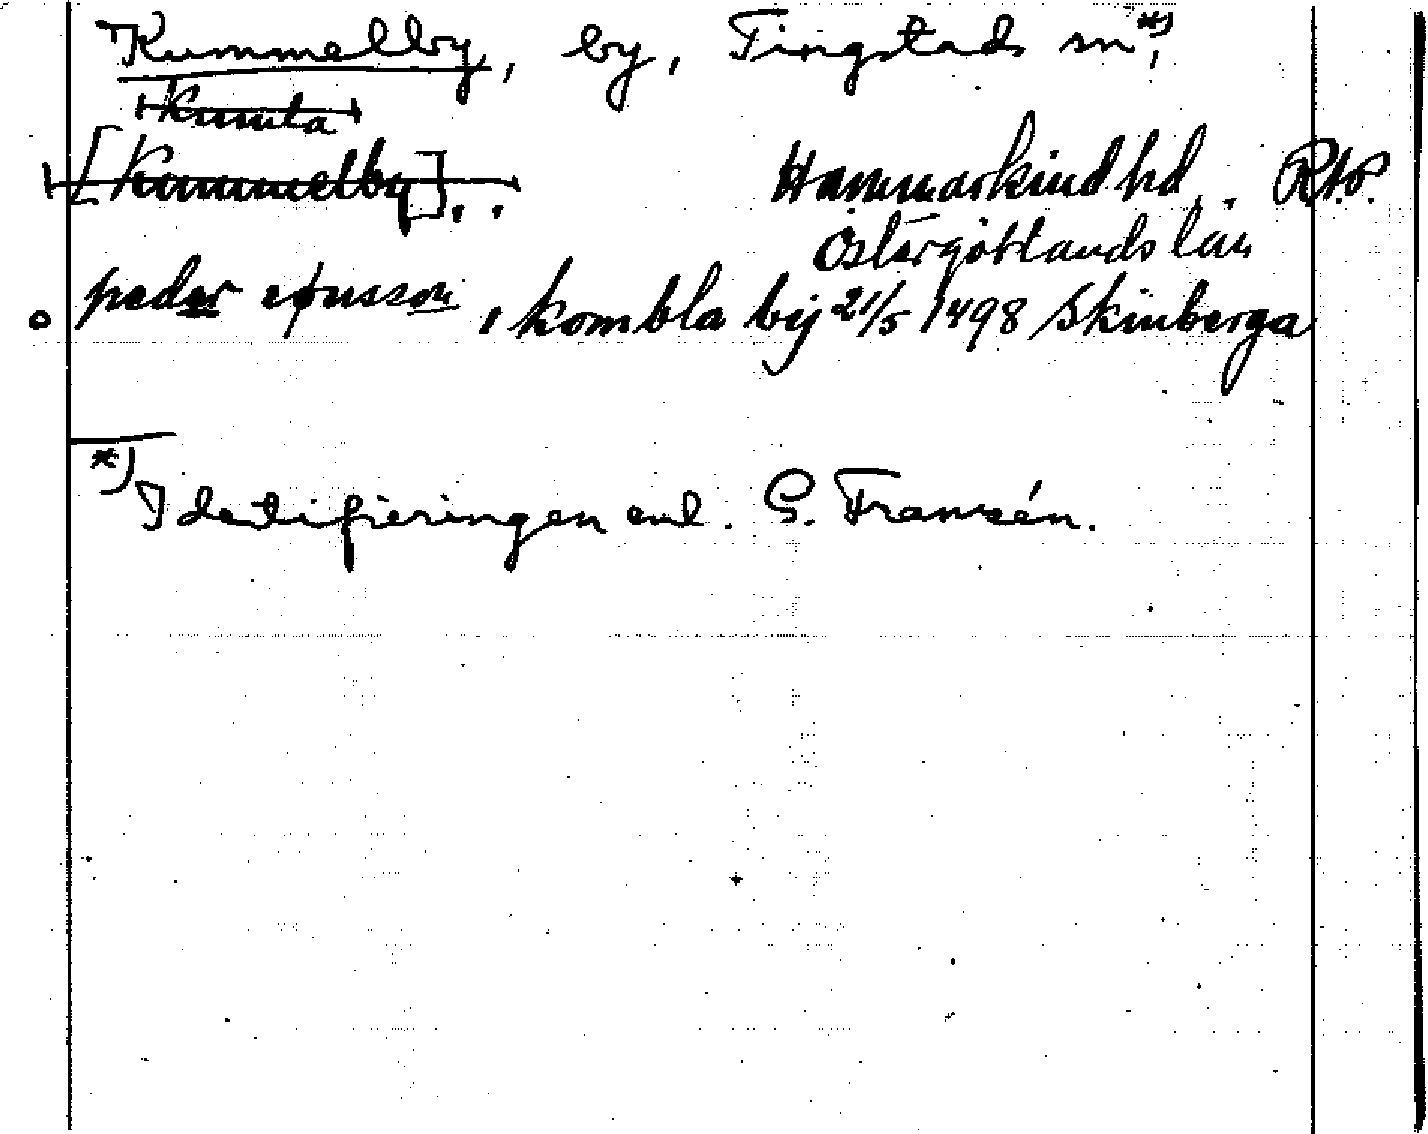 Kummelby, by, Tingstads sn*),
Kumla
[Kummelby]..
Hammarkind hd. Rtp.
Östergötlands län
peder jønsson, i kombla by 21/5 1498 Skinberga
*) Identifieringen enl. G. Franzén.